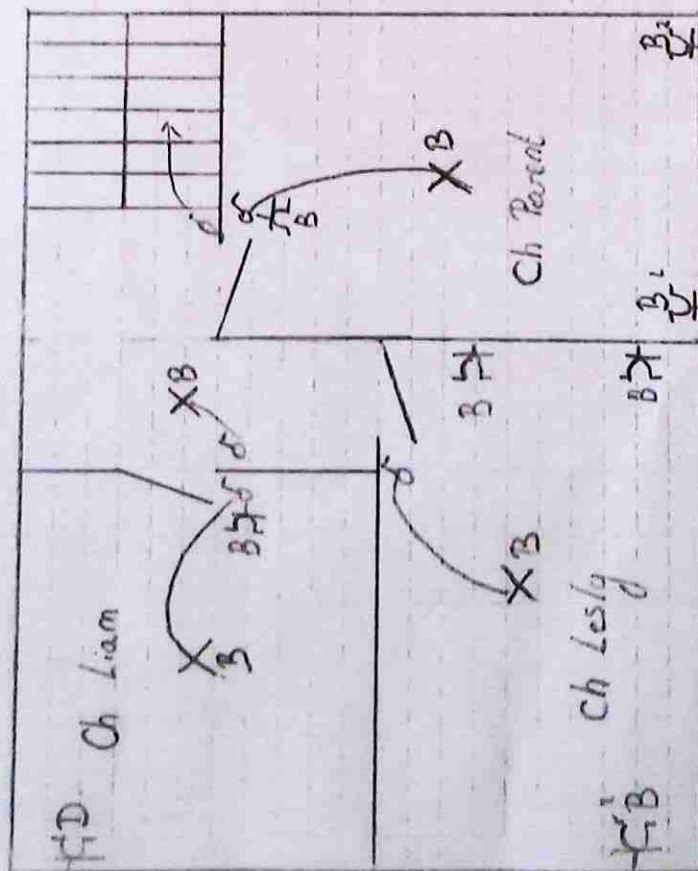 Ch Liam
D
B
B
B
Ch Parent
B
B
B²
B²
Ch Lesly
B
B
B
B²